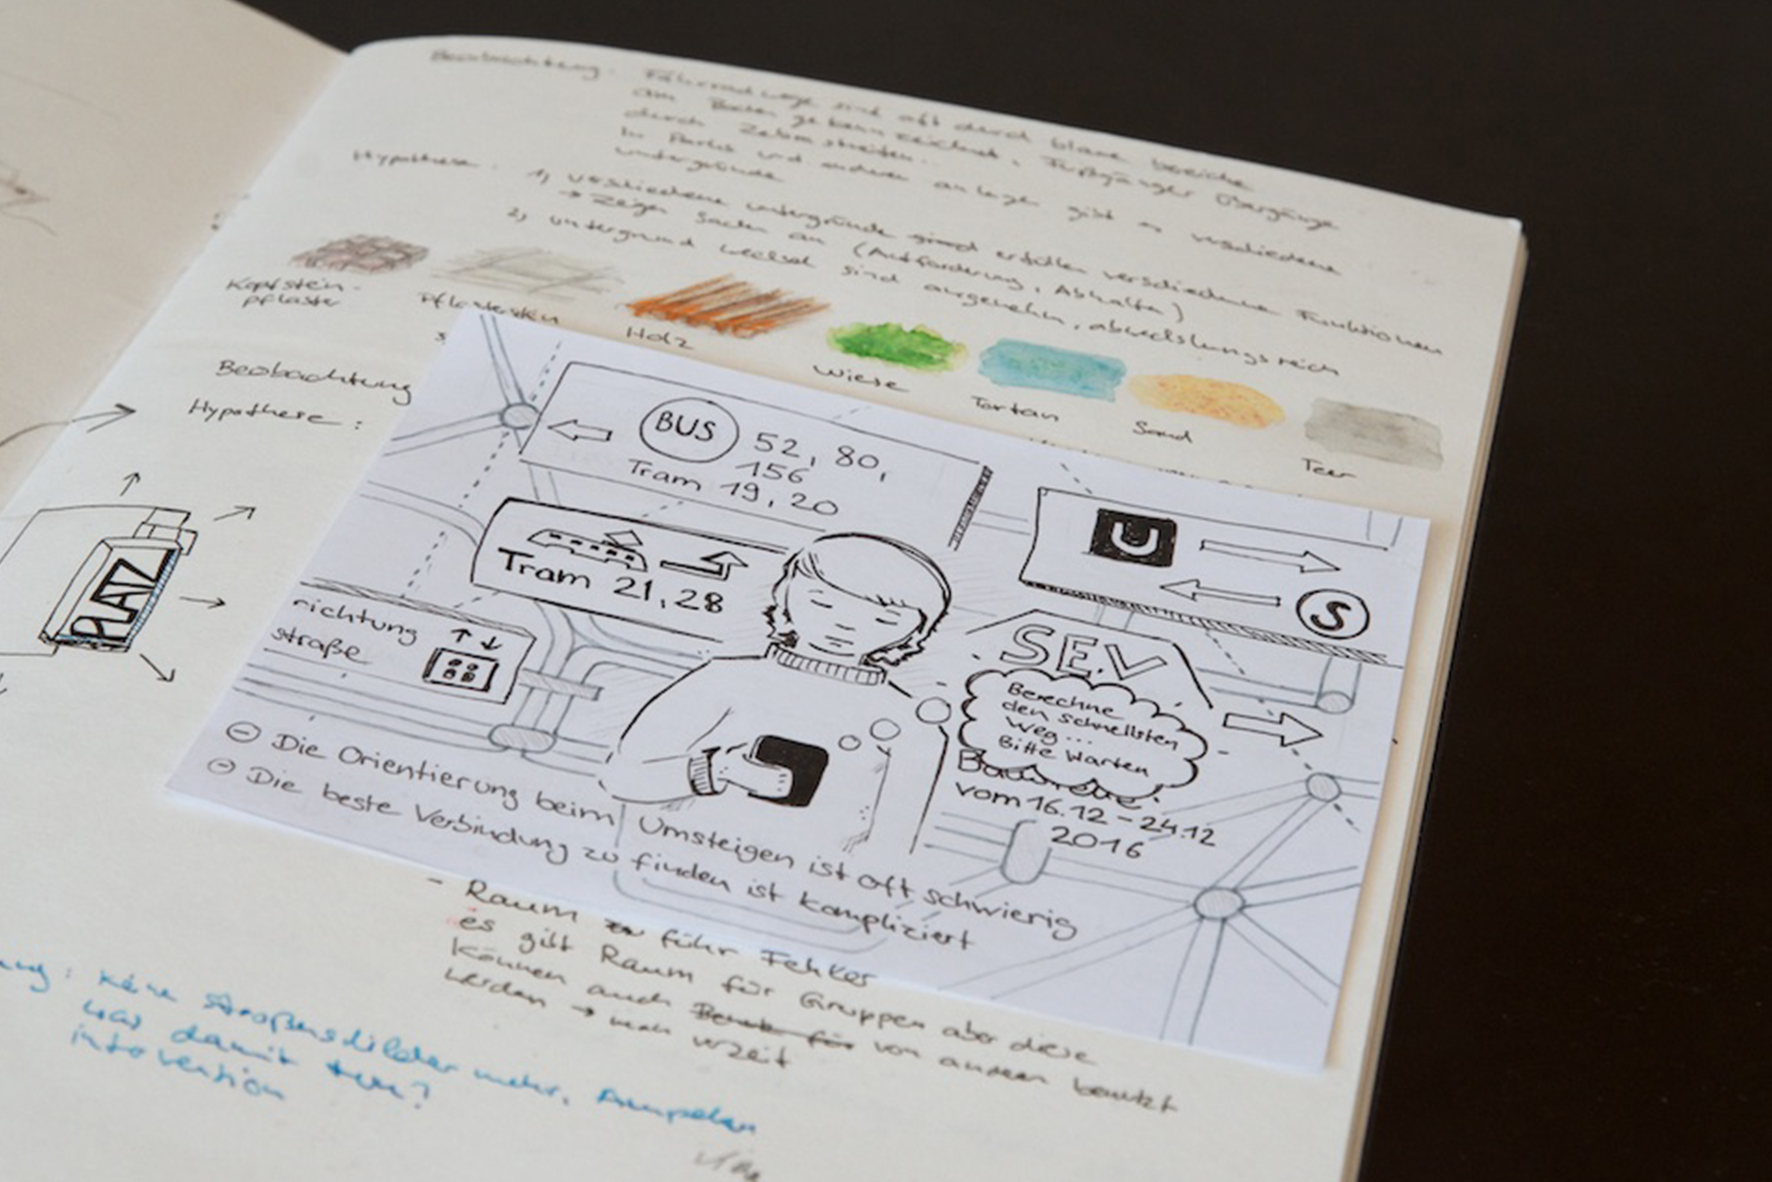 Beobachtung: Fahrradwege sind oft durch blaue bereiche
am Boden gekennzeichnet. Fußgänger übergänge
durch Zebrastreifen.
In Parks und anderen anlagen gibt es verschiedene
untergründe
Hypothese: 1) verschiedene untergründe erfüllen verschiedene Funktionen
→ zeigen Sachen an (Aufforderung, Abhalten)
2) untergrund wechsel sind angenehm, abwechslungsreich
Kopfstein-
pflaster
Pflasterstein
Holz
Wiese
Tartan
Sand
Teer
Beobachtung
Hypothese:
PLATZ
← BUS 52, 80,
156
Tram 19, 20
Tram 21, 28
U →
← S
richtung
straße
SEV
Berechne
den schnellsten
Weg...
Bitte warten
vom 16.12 - 24.12
2016
⊖ Die Orientierung beim Umsteigen ist oft schwierig
⊖ Die beste Verbindung zu finden ist kompliziert
- Raum für Fehler
es gibt Raum für Gruppen aber diese
können auch von anderen benutzt
werden → man
keine mehr, Ampeln
was damit tun?
intervention